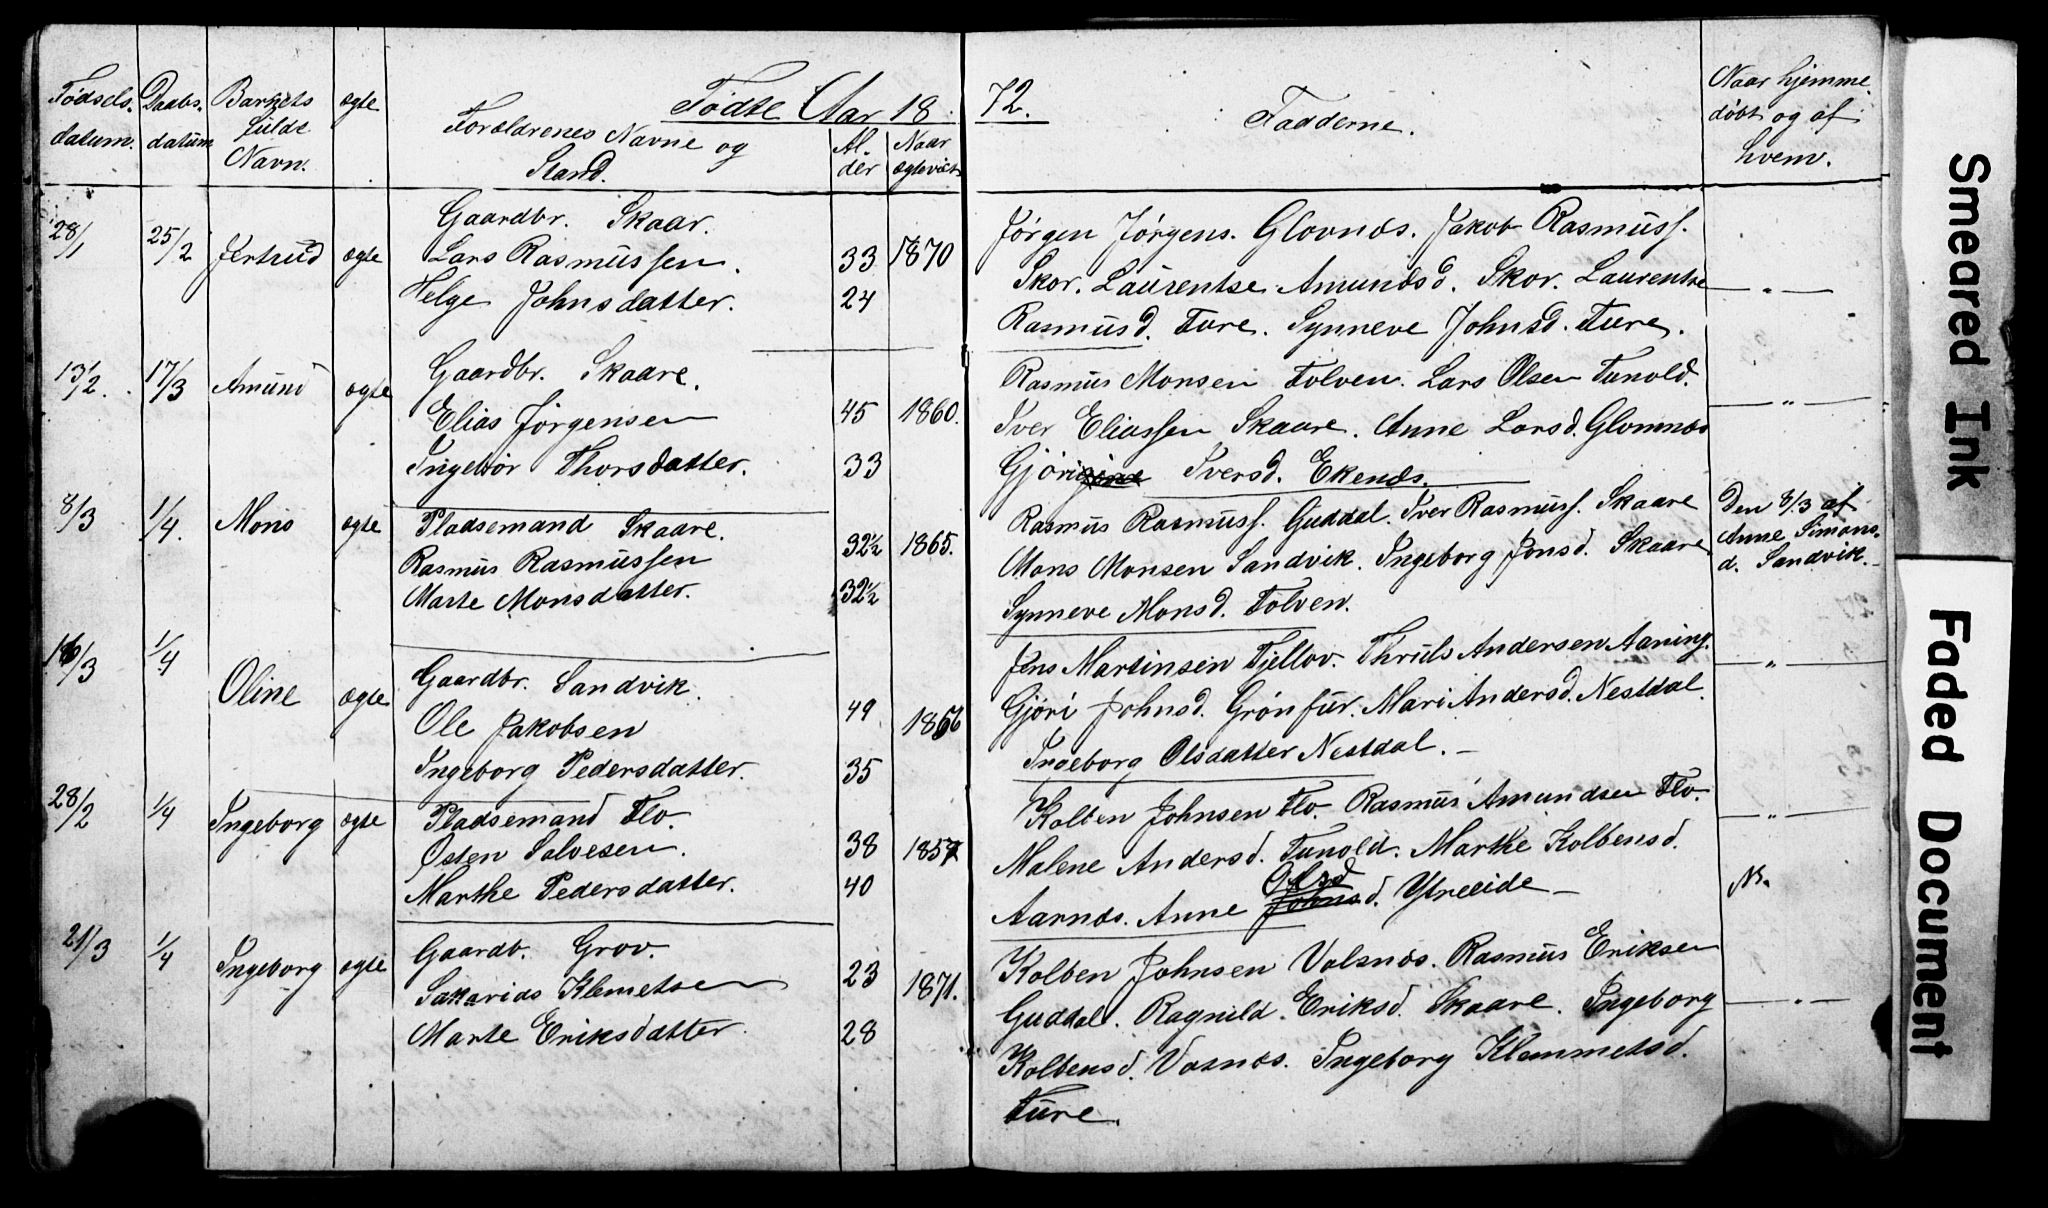 Fødte Aar 1872.
Fødsels- datum.
Daabs- datum
Barnets fulde Navn.
ægte
Forældrenes Navne og Stand.
Al- der
Naar ægteviet
Fadderne.
Naar hjemme- døbt og af hvem.
28/1 25/2 Jertrud ægte Gaardbr. Skaar.
Lars Rasmussen. 33 1870
Helge Johnsdatter. 24
Jørgen Jørgens. Glomnæs. Jakob Rasmuss.
Skor. Laurentse Amundsd. Skor. Laurentse — " —
Rasmusd. Fure. Synneve Johnsd. Fure.
13/2. 17/3 Amund ægte Gaardbr. Skaare.
Elias Jørgensen 45 1860.
Ingebør Thorsdatter. 33
Rasmus Monsen Tolven. Lars Olsen Tunold.
Iver Eliassen Skaare. Anne Larsd. Glomnæs — " —
Gjøri Iversd. Ekenæs.
8/3 1/4. Mons ægte Pladsemand Skaare.
Rasmus Rasmussen 32½ 1865.
Marte Monsdatter. 32½
Rasmus Rasmuss. Guddal. Iver Rasmuss. Skaare
Mons Monsen Sandvik. Ingeborg Jonsd. Skaare
Synneve Monsd. Tolven.
Den 8/3 af
Anne Simons-
d. Sandvik.
16/3 1/4 Oline ægte Gaardbr. Sandvik.
Ole Jakobsen 49 1856
Ingeborg Pedersdatter. 35
Jens Martinsen Fjellov. Thruls Andersen Aaning. — " —
Gjøri Johnsd. Grønfur. Mari Andersd. Nestdal.
Ingeborg Olsdatter Nestdal. —
28/2 1/4 Ingeborg ægte Pladsemand Flo.
Østen Salvesen. 38 1857
Marthe Pedersdatter. 40
Kolben Johnsen Flo. Rasmus Amundsen Flo. — " —
Malene Andersd. Tunold. Marthe Kolbensd.
Aarnæs. Anne Olsd Johnsd. Ytreeide —
N.
21/3 1/4 Ingeborg ægte Gaardb. Grov.
Sakarias Klemetsen 23 1871.
Marte Eriksdatter. 28
Kolben Johnsen Valsnæs. Rasmus Eriksen
Guddal. Ragnild Eriksd. Skaare. Ingeborg — " —
Kolbensd. Vosnæs. Ingeborg Klemmetsd.
Fure.
Smeared Ink
Faded Document